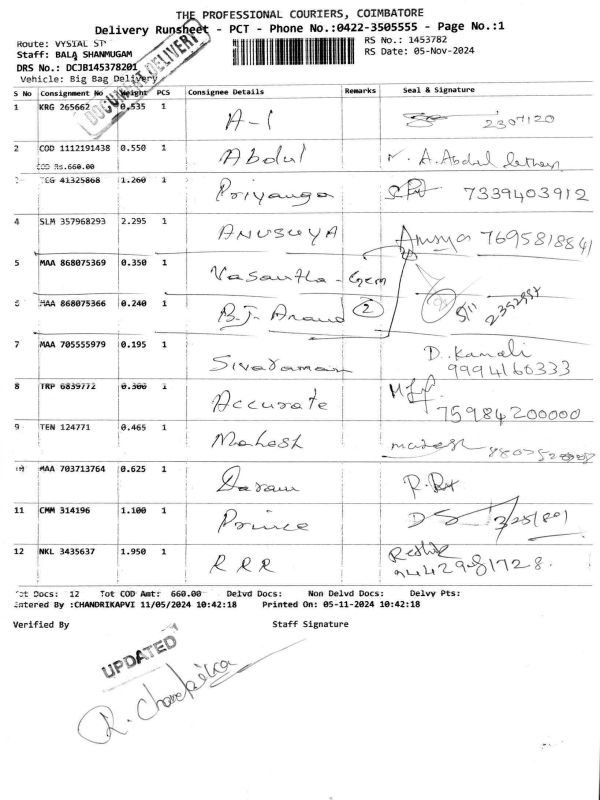 THE PROFESSIONAL COURIERS, COIMBATORE
Delivery Runsheet - PCT - Phone No.:0422-3505555 - Page No.:1
Route: VYSIAL ST
Staff: BALA SHANMUGAM
DRS No.: DCJB145378201
Vehicle: Big Bag Delivery
RS No.: 1453782
RS Date: 05-Nov-2024
DOCUMENT DELIVERY
S No Consignment No Weight PCS Consignee Details Remarks Seal & Signature
1 KRG 265662 0.535 1 A-1 2307120
2 COD 1112191438 0.550 1 Abdul A. Abdul
COD Rs.660.00
TCG 41325868 1.260 1 Priyanga 7339403912
4 SLM 357968293 2.295 1 ANUSUYA Anusya 7695818841
5 MAA 868075369 0.350 1 Vasantha - Gem
6 MAA 868075366 0.240 1 B.J. Anand 2 5/11
7 MAA 705555979 0.195 1 Sivaraman D. Kamali
9994160333
8 TRP 6839772 0.300 1 Accurate
75984200000
9 TEN 124771 0.465 1 Mahesh
MAA 703713764 0.625 1
11 CMM 314196 1.100 1 Prince
12 NKL 3435637 1.950 1 RRR
Tot Docs: 12 Tot COD Amt: 660.00 Delvd Docs: Non Delvd Docs: Delvy Pts:
Entered By :CHANDRIKAPVI 11/05/2024 10:42:18 Printed On: 05-11-2024 10:42:18
Verified By Staff Signature
UPDATED
R. Chandrika